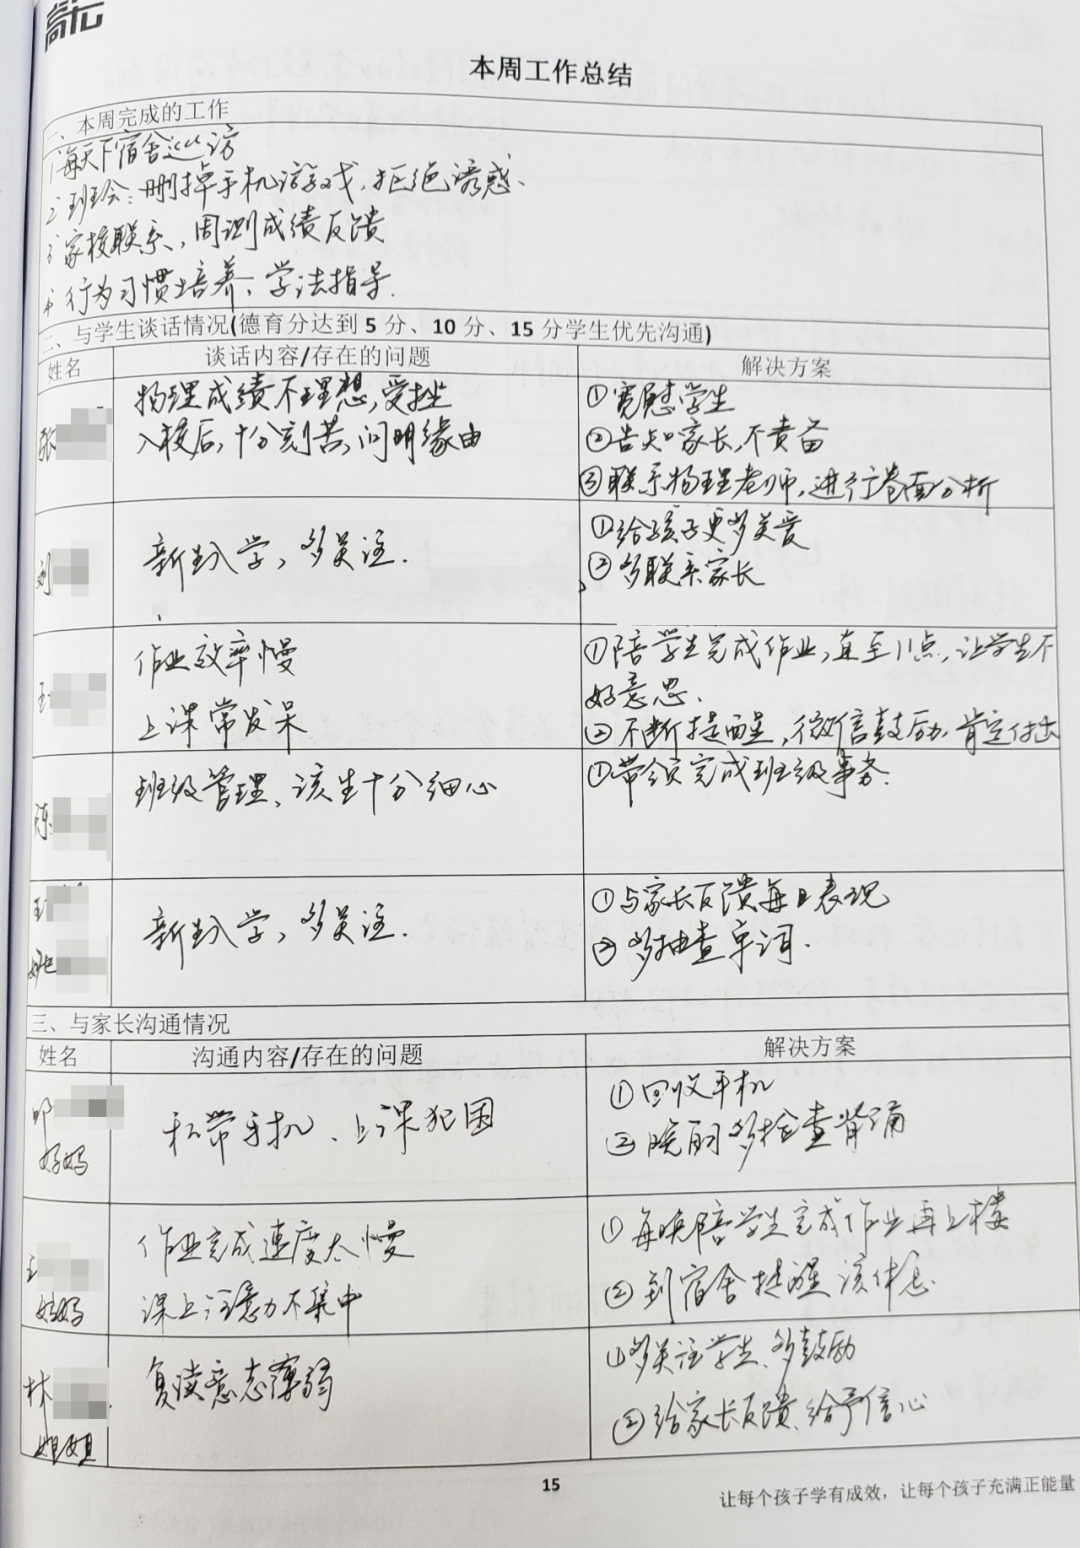 本周工作总结
一、本周完成的工作
1、每天下宿舍巡访
2、班会：删掉手机游戏，拒绝诱惑、
3、家校联系，周测成绩反馈
4、行为习惯培养、学法指导.
二、与学生谈话情况(德育分达到 5 分、10 分、15 分学生优先沟通)
姓名 谈话内容/存在的问题 解决方案
张
物理成绩不理想，受挫
入校后，十分刻苦，问明缘由
①宽慰学生
②告知家长，不责备
③联系物理老师，进行卷面分析
刘
新生入学，多关注.
①给孩子更多关爱
②多联系家长
王
作业效率慢
上课常发呆
①陪学生完成作业，直至11点，让学生不
好意思.
②不断提醒，微信鼓励、肯定付出
陈
班级管理、该生十分细心
①带领完成班级事务.
王
新生入学，多关注.
①与家长反馈每日表现
②多抽查字词.
三、与家长沟通情况
姓名 沟通内容/存在的问题 解决方案
邱
妈妈
私带手机、上课犯困
①回收手机
②晚自习多检查背诵
王
妈妈
作业完成速度太慢
课上注意力不集中
①每晚陪学生完成作业再上楼
②到宿舍提醒该休息.
林
姐姐
复读意志薄弱
①多关注学生、多鼓励
②给家长反馈、给予信心
15
让每个孩子学有成效，让每个孩子充满正能量